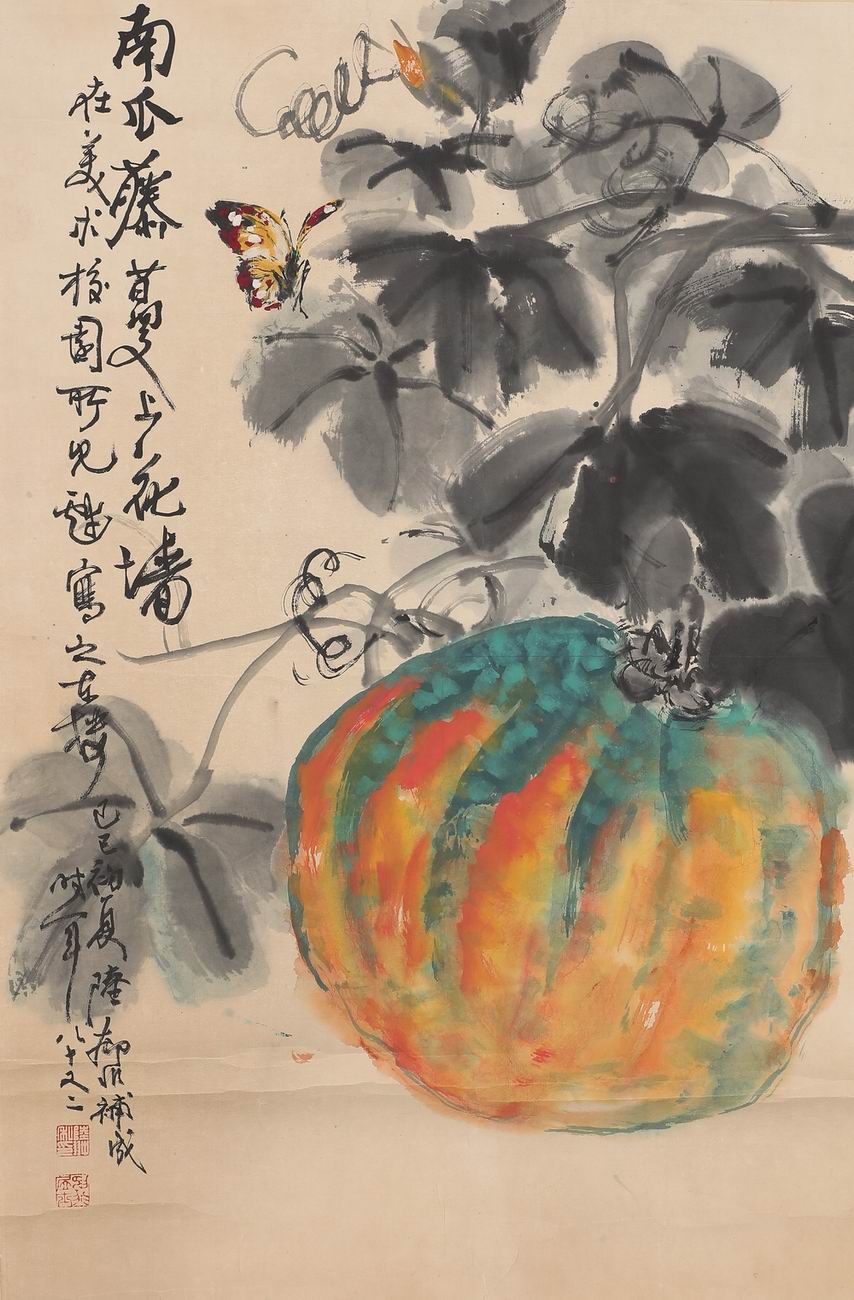 南瓜藤蔓上花墙
在美术校園所见寫之楼
己巳初夏陸抑非補成
时年八十又二